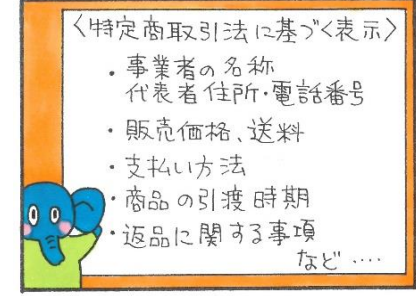 〈特定商取引法に基づく表示〉
・事業者の名称
代表者住所・電話番号
・販売価格、送料
・支払い方法
・商品の引渡時期
・返品に関する事項
など‥‥